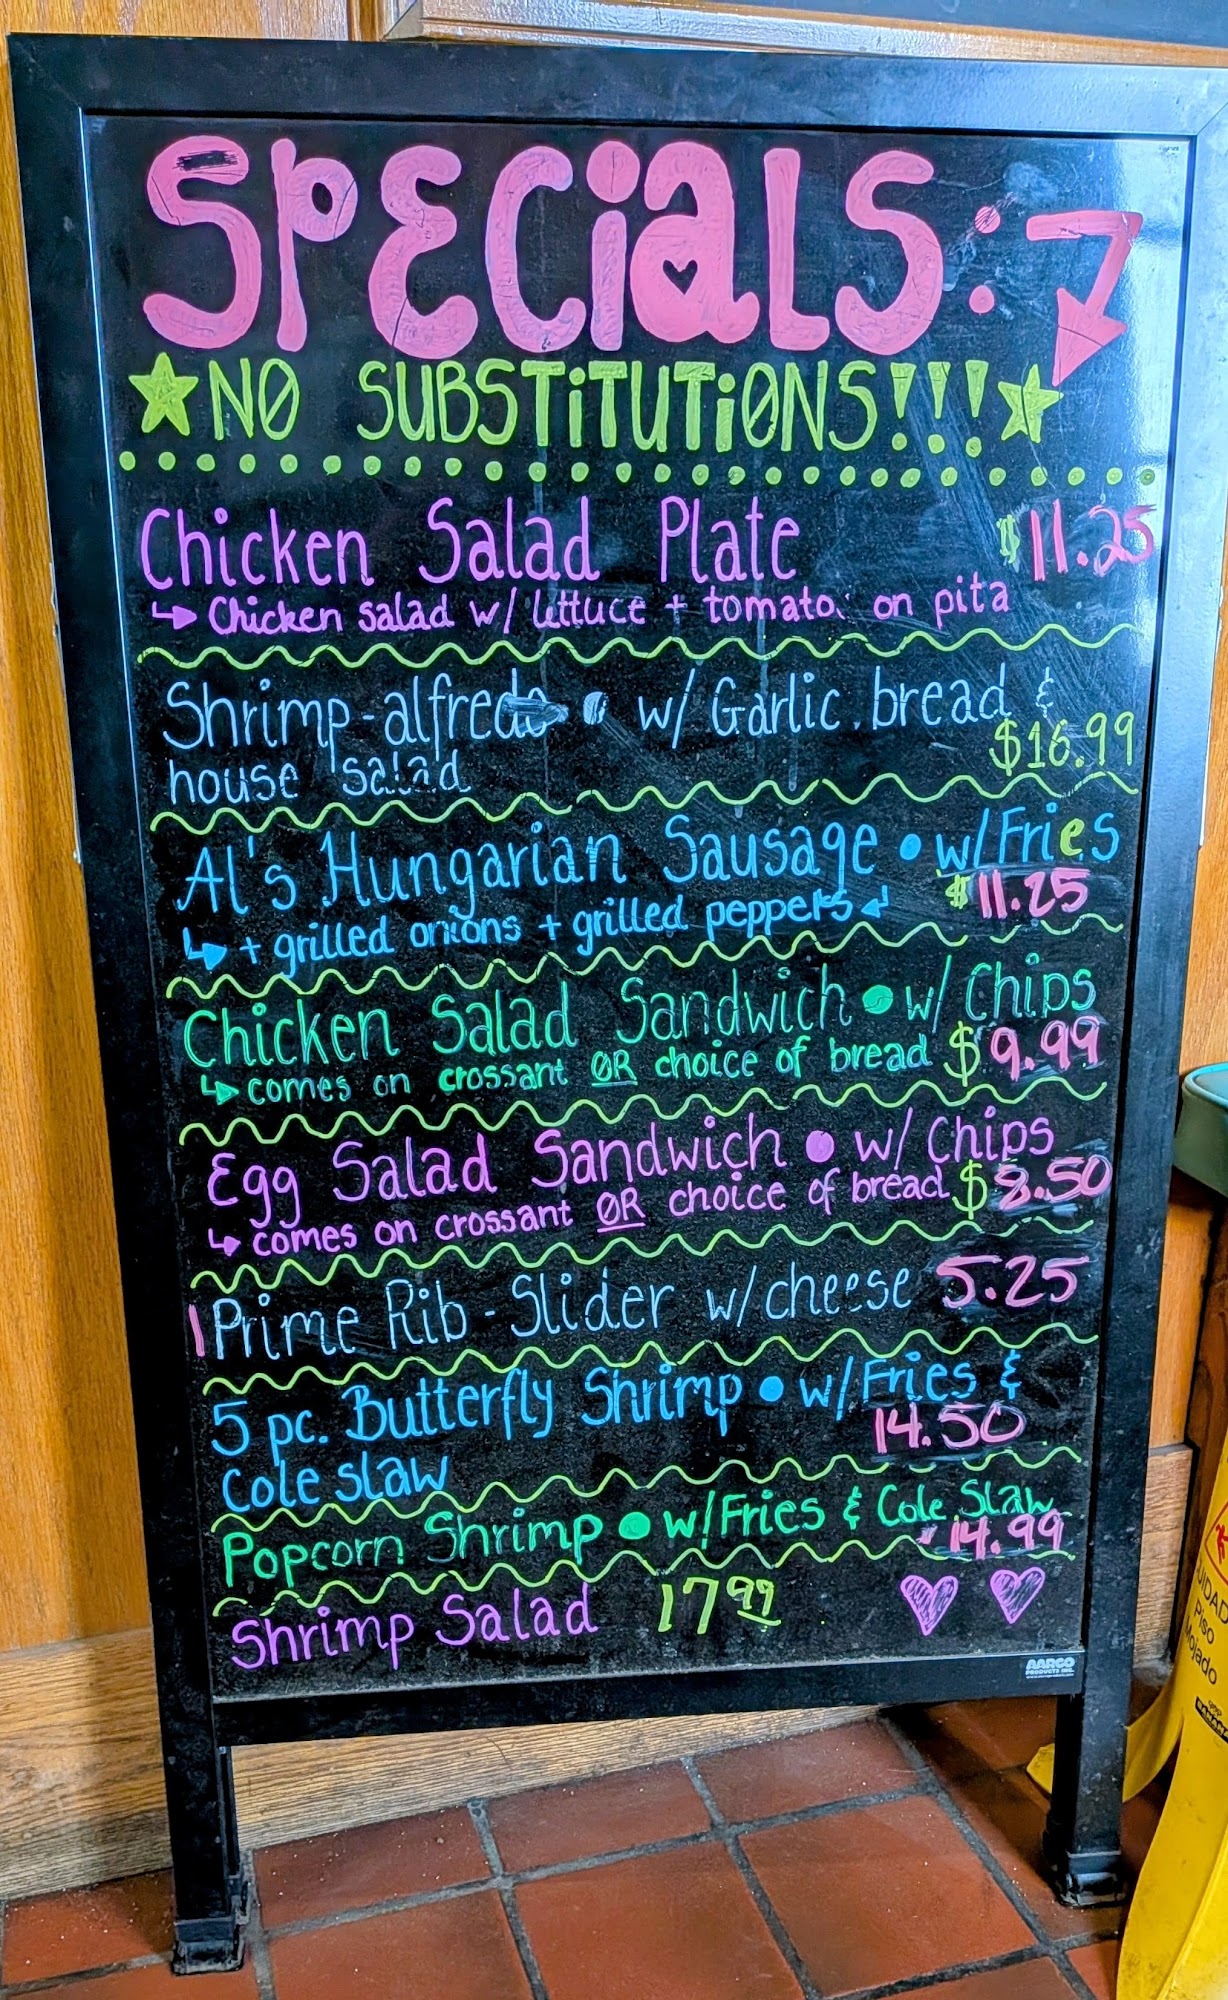 SPECiALS:
NO SUBSTiTUTiONS!!!
Chicken Salad Plate $11.25
Chicken salad w/ lettuce + tomato on pita
Shrimp-alfredo • w/ Garlic bread &
house salad $16.99
Al's Hungarian Sausage • w/Fries
+ grilled onions + grilled peppers $11.25
Chicken Salad Sandwich • w/ Chips
comes on crossant OR choice of bread $9.99
Egg Salad Sandwich • w/ Chips
comes on crossant OR choice of bread $8.50
1 Prime Rib-Slider w/cheese 5.25
5 pc. Butterfly Shrimp • w/Fries &
Cole slaw 14.50
Popcorn Shrimp • w/Fries & Cole Slaw
14.99
Shrimp Salad 17.99
AARCO
PRODUCTS INC.
Piso
Mojado